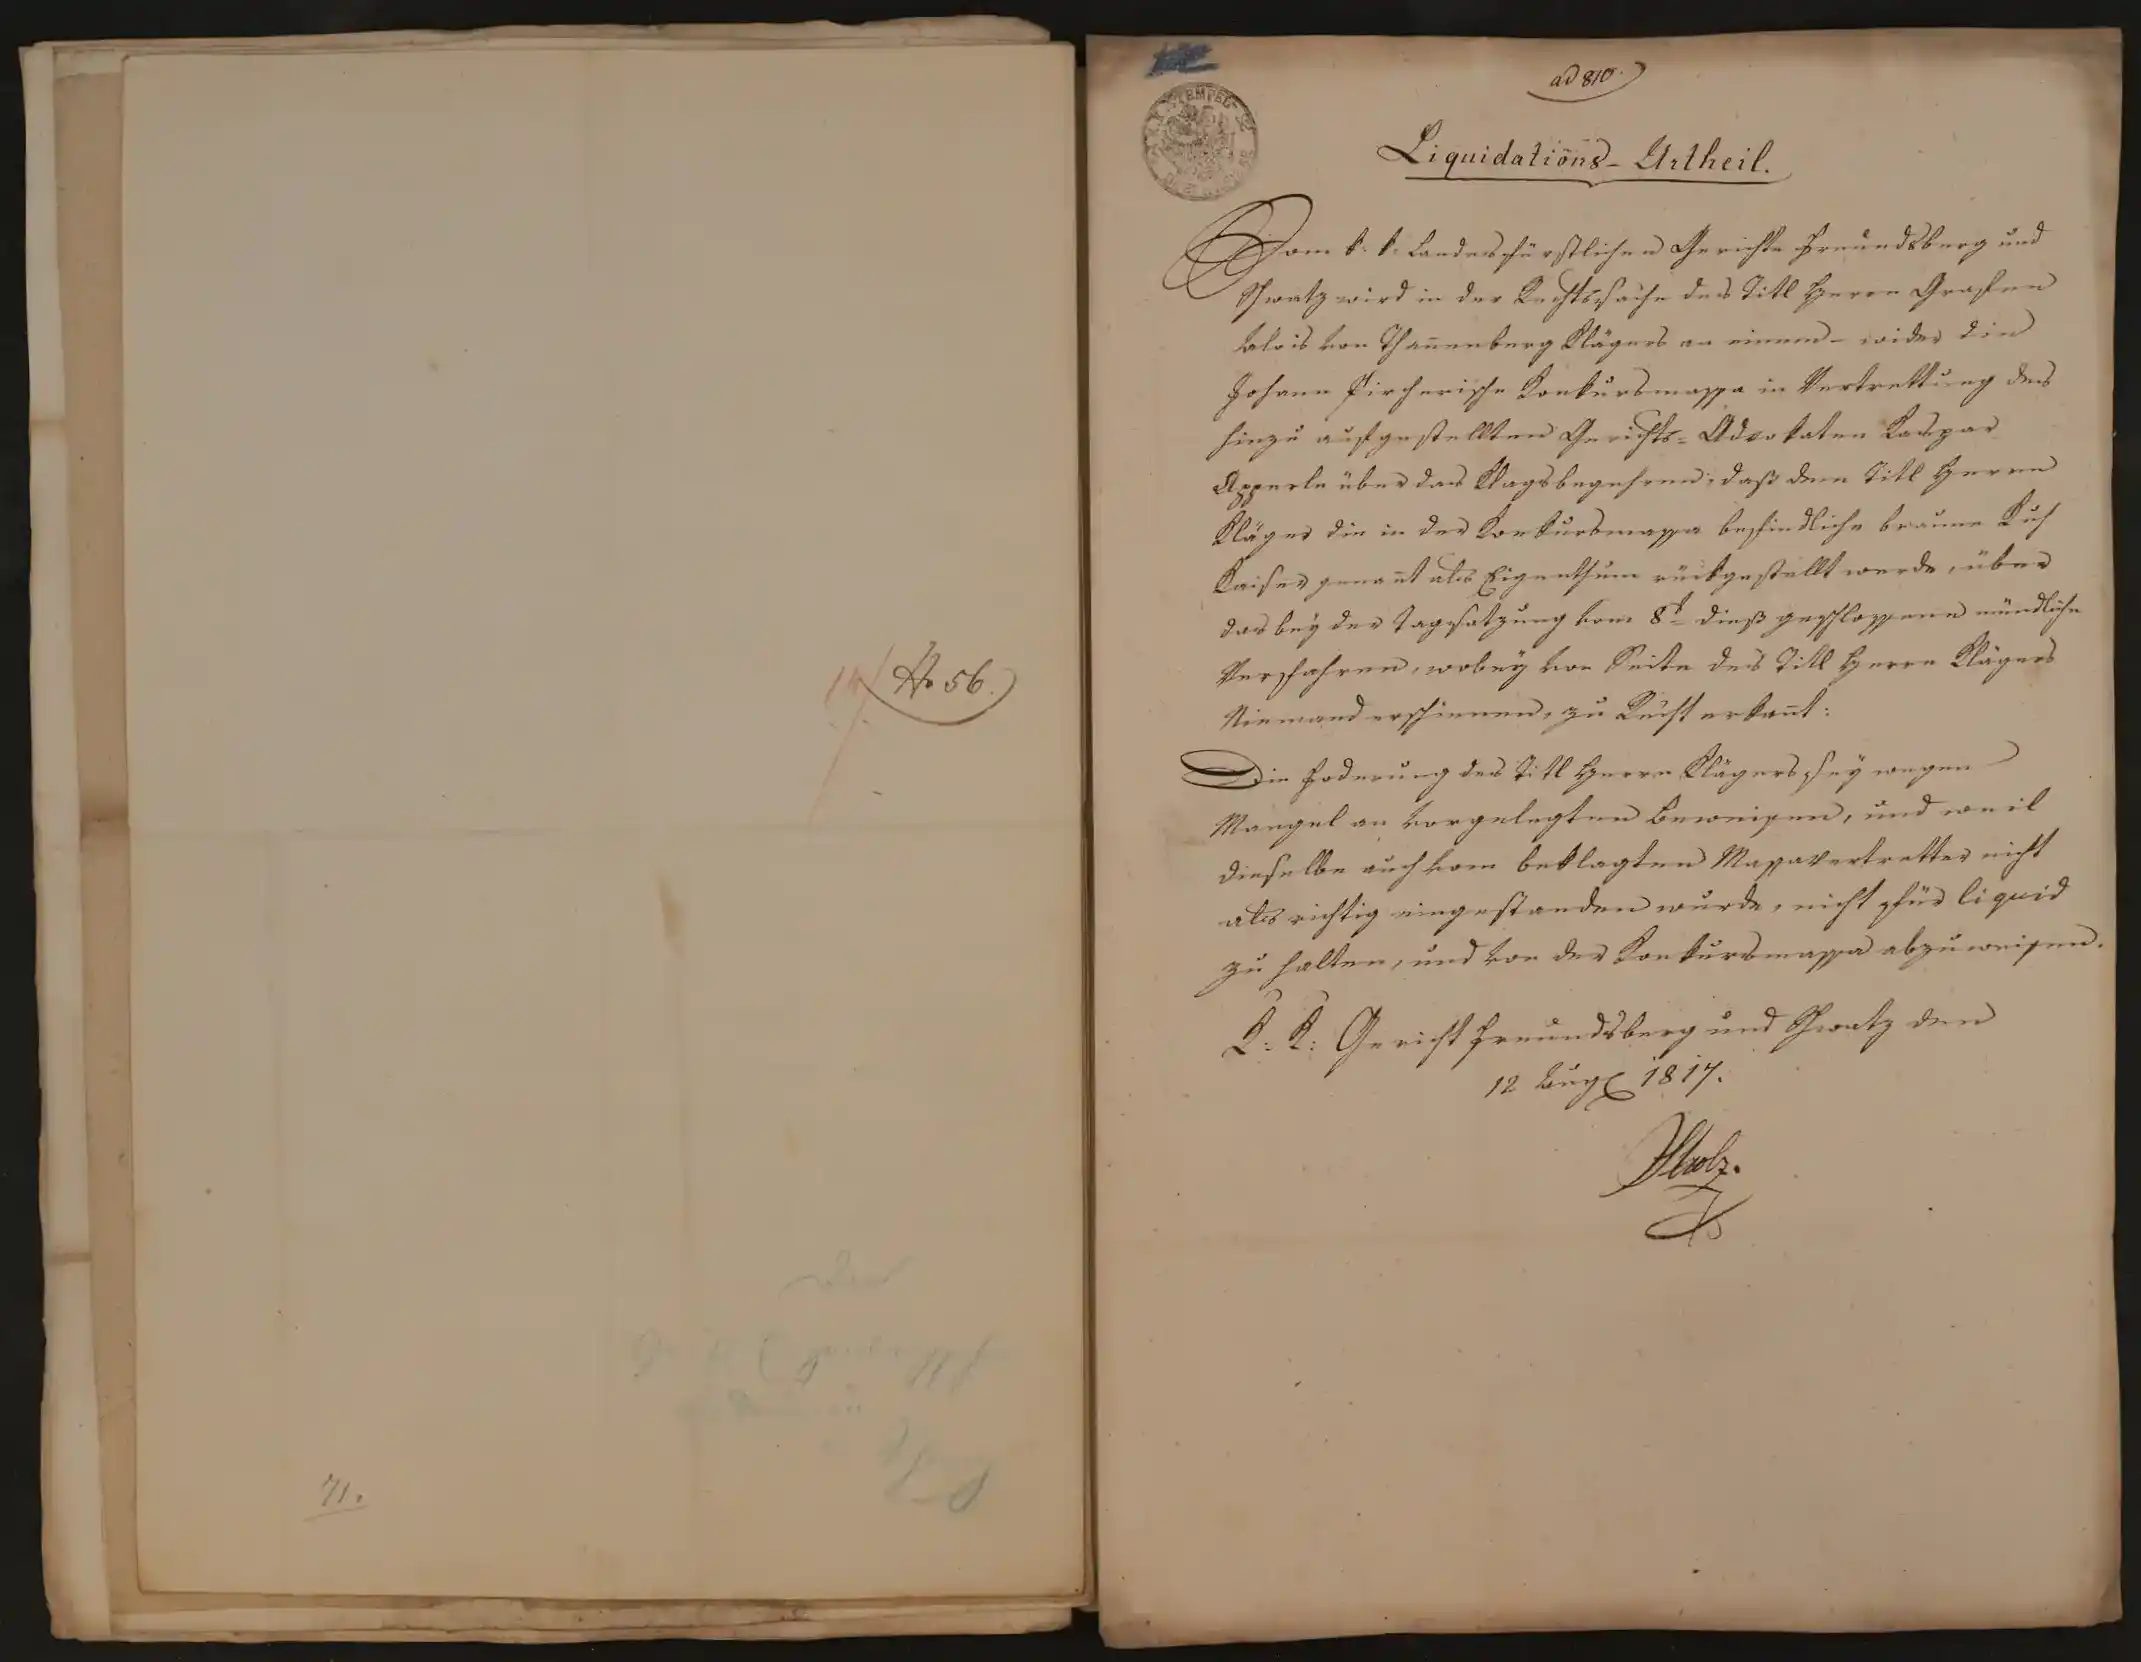 14
No 56.
71.
ad 810.
K. K. STEMPEL
Liquidations-Urtheil.
Vom k: k: Landesfürstlichen Gerichte Freundsberg und
Schwatz wird in der Rechtssache des Titl Herrn Grafen
Alois von Thañenberg Klägers an einem – wider die
Johann Pircherische Konkursmassa in Vertrettung des
hiezu aufgestellten Gerichts-Advokaten Kaspar
Apperle über das Klagsbegehren, daß dem Titl Herrn
Kläger die in der Konkursmassa befindliche braune Kuh
Kaiser genañt als Eigenthum rückgestellt werde, über
das bey der Tagsatzung vom 8t dieß geschlossene mündliche
Verfahren, wobey von Seite des Titl Herrn Klägers
Niemand erschienen, zu Recht erkañt:
Die Foderung des Titl Herrn Klägers sey wegen
Mangel an vorgelegten Beweisen, und weil
dieselbe auch vom beklagten Massavertretter nicht
als richtig eingestanden wurde, nicht für liquid
zu halten, und von der Konkursmassa abzuweisen.
K: K: Gericht Freundsberg und Schwatz den
12 Aug 1817.